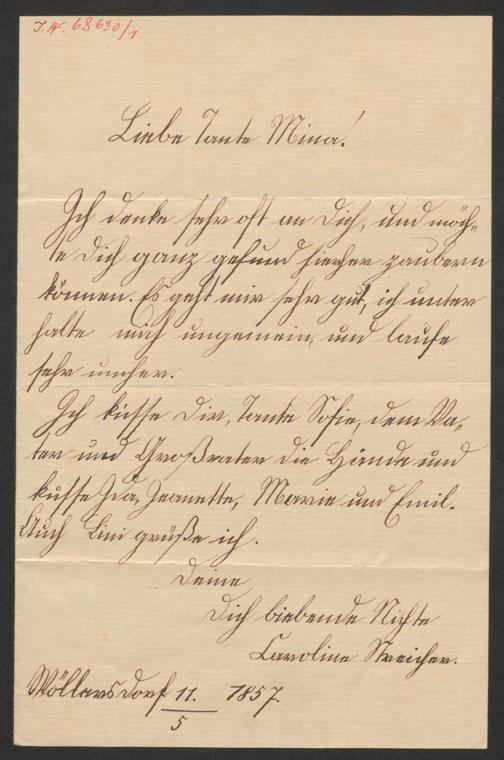 J.N. 68630/1
Liebe Tante Mina!
Ich denke sehr oft an Dich, und möch-
te Dich ganz gesund hierher zaubern
können. Es geht mir sehr gut, ich unter
halte mich ungemein, und laufe
sehr umher.
Ich küsse Dir, Tante Sofie, dem Va-
ter und Großvater die Hände und
küsse Ida, Jeanette, Marie und Emil.
Auch Lini grüße ich.
Deine
Dich liebende Nichte
Caroline Streicher.
Wöllersdorf 11. 1857.
5